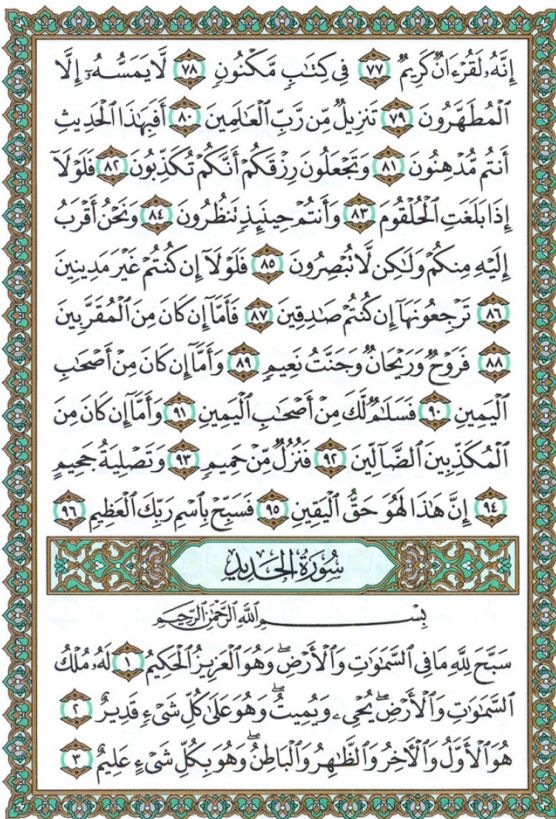 إِنَّهُۥ لَقُرْءَانٌ كَرِيمٌ ٧٧ فِى كِتَٰبٍ مَّكْنُونٍ ٧٨ لَّا يَمَسُّهُۥٓ إِلَّا
ٱلْمُطَهَّرُونَ ٧٩ تَنزِيلٌ مِّن رَّبِّ ٱلْعَٰلَمِينَ ٨٠ أَفَبِهَٰذَا ٱلْحَدِيثِ
أَنتُم مُّدْهِنُونَ ٨١ وَتَجْعَلُونَ رِزْقَكُمْ أَنَّكُمْ تُكَذِّبُونَ ٨٢ فَلَوْلَآ
إِذَا بَلَغَتِ ٱلْحُلْقُومَ ٨٣ وَأَنتُمْ حِينَئِذٍ تَنظُرُونَ ٨٤ وَنَحْنُ أَقْرَبُ
إِلَيْهِ مِنكُمْ وَلَٰكِن لَّا تُبْصِرُونَ ٨٥ فَلَوْلَآ إِن كُنتُمْ غَيْرَ مَدِينِينَ
٨٦ تَرْجِعُونَهَآ إِن كُنتُمْ صَٰدِقِينَ ٨٧ فَأَمَّآ إِن كَانَ مِنَ ٱلْمُقَرَّبِينَ
٨٨ فَرَوْحٌ وَرَيْحَانٌ وَجَنَّتُ نَعِيمٍ ٨٩ وَأَمَّآ إِن كَانَ مِنْ أَصْحَٰبِ
ٱلْيَمِينِ ٩٠ فَسَلَٰمٌ لَّكَ مِنْ أَصْحَٰبِ ٱلْيَمِينِ ٩١ وَأَمَّآ إِن كَانَ مِنَ
ٱلْمُكَذِّبِينَ ٱلضَّآلِّينَ ٩٢ فَنُزُلٌ مِّنْ حَمِيمٍ ٩٣ وَتَصْلِيَةُ جَحِيمٍ
٩٤ إِنَّ هَٰذَا لَهُوَ حَقُّ ٱلْيَقِينِ ٩٥ فَسَبِّحْ بِٱسْمِ رَبِّكَ ٱلْعَظِيمِ ٩٦
سُورَةُ الْحَدِيدِ
بِسْمِ ٱللَّهِ ٱلرَّحْمَٰنِ ٱلرَّحِيمِ
سَبَّحَ لِلَّهِ مَا فِى ٱلسَّمَٰوَٰتِ وَٱلْأَرْضِ ۖ وَهُوَ ٱلْعَزِيزُ ٱلْحَكِيمُ ١ لَهُۥ مُلْكُ
ٱلسَّمَٰوَٰتِ وَٱلْأَرْضِ ۖ يُحْىِۦ وَيُمِيتُ ۖ وَهُوَ عَلَىٰ كُلِّ شَىْءٍ قَدِيرٌ ٢
هُوَ ٱلْأَوَّلُ وَٱلْءَاخِرُ وَٱلظَّٰهِرُ وَٱلْبَاطِنُ ۖ وَهُوَ بِكُلِّ شَىْءٍ عَلِيمٌ ٣